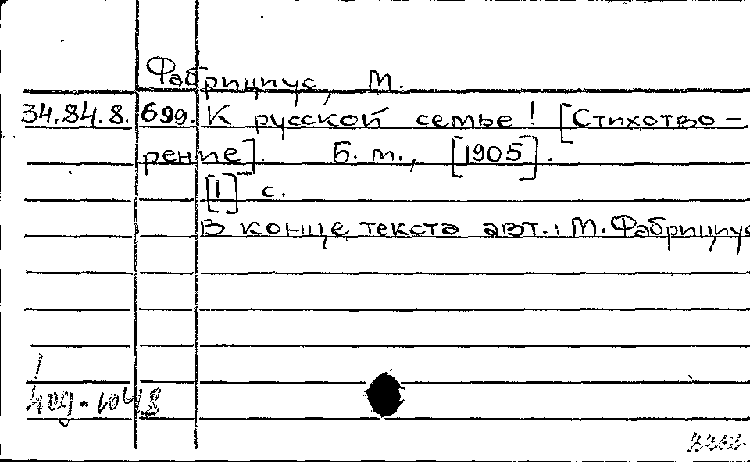 Фабрициус, М.
34.84.8. 699. К русской семье! [Стихотво-
рение]. Б. м., [1905].
[1] с.
В конце текста авт.: М. Фабрициус